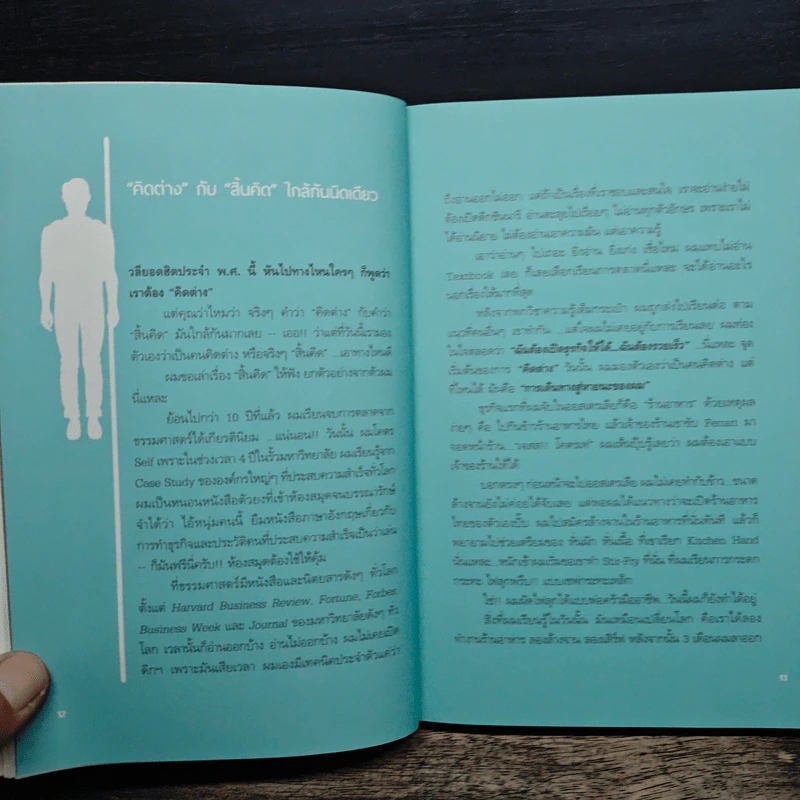 "คิดต่าง" กับ "สิ้นคิด" ใกล้กันนิดเดียว
วลียอดฮิตประจำ พ.ศ. นี้ หันไปทางไหนใครๆ ก็พูดว่า
เราต้อง "คิดต่าง"
แต่คุณว่าไหมว่า จริงๆ คำว่า "คิดต่าง" กับคำว่า
"สิ้นคิด" มันใกล้กันมากเลย -- เออ!! ว่าแต่ที่วันนี้เรามอง
ตัวเองว่าเป็นคนคิดต่าง หรือจริงๆ "สิ้นคิด" ...เอาทางไหนดี
ผมขอเล่าเรื่อง "สิ้นคิด" ให้ฟัง ยกตัวอย่างจากตัวผม
นี่แหละ
ย้อนไปกว่า 10 ปีที่แล้ว ผมเรียนจบการตลาดจาก
ธรรมศาสตร์ได้เกียรตินิยม ...แน่นอน!! วันนั้น ผมโคตร
Self เพราะในช่วงเวลา 4 ปีในรั้วมหาวิทยาลัย ผมเรียนรู้จาก
Case Study ขององค์กรใหญ่ๆ ที่ประสบความสำเร็จทั่วโลก
ผมเป็นหนอนหนังสือตัวยงที่เข้าห้องสมุดจนบรรณารักษ์
จำได้ว่า ไอ้หนุ่มคนนี้ ยืมหนังสือภาษาอังกฤษเกี่ยวกับ
การทำธุรกิจและประวัติคนที่ประสบความสำเร็จเป็นว่าเล่น
-- ก็มันฟรีนี่ครับ!! ห้องสมุดต้องใช้ให้คุ้ม
ที่ธรรมศาสตร์มีหนังสือและนิตยสารดังๆ ทั่วโลก
ตั้งแต่ Harvard Business Review, Fortune, Forbes,
Business Week และ Journal ของมหาวิทยาลัยดังๆ ทั่ว
โลก เวลานั้นก็อ่านออกบ้าง อ่านไม่ออกบ้าง ผมไม่เคยเปิด
ดิกฯ เพราะมันเสียเวลา ผมเองมีเทคนิคประจำตัวแต่ว่า
12
ถึงอ่านออกไม่ออก แต่ถ้าเป็นเรื่องที่เราชอบและสนใจ เราจะอ่านง่ายไม่
ต้องเปิดดิกชันนารี อ่านตะลุยไปเรื่อยๆ ไม่อ่านทุกตัวอักษร เพราะเราไม่
ได้อ่านนิยาย ไม่ต้องอ่านเอาความมัน แต่เอาความรู้
เอาว่าอ่านๆ ไปเถอะ ยิ่งอ่าน ยิ่งเก่ง เชื่อไหม ผมแทบไม่อ่าน
Textbook เลย ก็เลยเลือกเรียนการตลาดนี่แหละ จะได้อ่านอะไร
นอกเรื่องให้มากที่สุด
หลังจากพกวิชาความรู้เต็มกระเป๋า ผมถูกส่งไปเรียนต่อ ตาม
แนวที่คนอื่นๆ เขาทำกัน ...แต่ใจผมไม่เคยอยู่กับการเรียนเลย ผมท่อง
ในใจตลอดว่า "ฉันต้องเปิดธุรกิจให้ได้...ฉันต้องรวยเร็ว" ..นี่แหละ จุด
เริ่มต้นของการ "คิดต่าง" วันนั้น ผมมองตัวเองว่าเป็นคนคิดต่าง แต่
ที่ไหนได้ มันคือ "การเดินทางสู่หายนะของผม"
ธุรกิจแรกที่ผมจับในออสเตรเลียก็คือ "ร้านอาหาร" ด้วยเหตุผล
ง่ายๆ คือ ไปกินข้าวร้านอาหารไทย แล้วเจ้าของร้านเขาขับ Ferrari มา
จอดหน้าร้าน... "เจสส!! โคตรเท่" ผมเห็นปุ๊บรู้เลยว่า ผมต้องเอาแบบ
เจ้าของร้านให้ได้
บอกตรงๆ ก่อนหน้าจะไปออสเตรเลีย ผมไม่เคยทำกับข้าว.. ขนาด
ล้างจานยังไม่ค่อยได้จับเลย แต่พอผมได้แนวทางว่าจะเปิดร้านอาหาร
ไทยของตัวเองปั๊บ ผมไปสมัครล้างจานในร้านอาหารที่นั่นทันที แล้วก็
พยายามไปช่วยเตรียมของ หั่นผัก หั่นเนื้อ ที่เขาเรียก Kitchen Hand
นั่นแหละ...หนักเข้าผมเริ่มขอเขาทำ Stir-Fry ที่นั่น ที่ผมเรียนการกระดก
กระทะ ไฟลุกพรึ่บ!! แบบเชฟกระทะเหล็ก
ใช่!! ผมผัดไฟลุกได้แบบพ่อครัวมืออาชีพ. วันนี้ผมก็ยังทำได้อยู่
สิ่งที่ผมเรียนรู้ในวันนั้น มันเหมือนเปลี่ยนโลก คือเราได้ลอง
ทำงานร้านอาหาร ลองล้างจาน ลองเสิร์ฟ หลังจากนั้น 3 เดือนผมลาออก
13